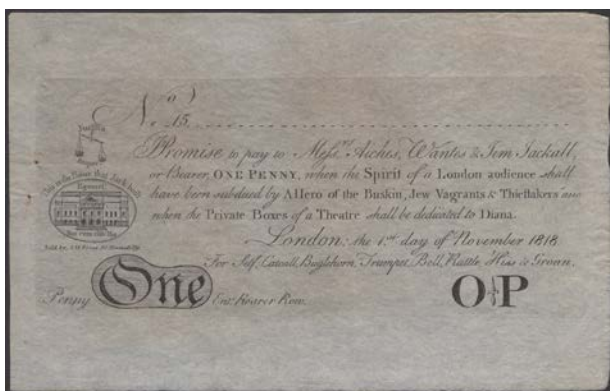 No.
15
Promise to pay to Messrs. Aiches, Wantes & Jim Jackall,
or Bearer, ONE PENNY, when the Spirit of a London audience shall
have been subdued by A Hero of the Buskin, Jew Vagrants & Thieftakers and
when the Private Boxes of a Theatre shall be dedicated to Diana.
London; the 1st. day of November 1818.
For Self, Catcall, Buglehorn, Trumpet, Bell, Rattle, Hiss & Groan.
This is the House that Jack built
Penny One
OP